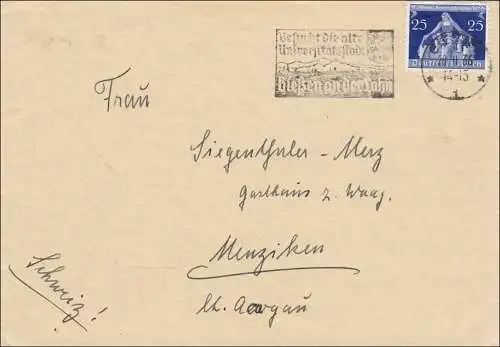 Besucht die alte
Universitätsstadt
Gießen an der Lahn
25 25
Deutsches Reich
14-15
Frau
Siegenthaler - Merz
Gasthaus z. Waag.
Menziken
Kt. Aargau
Schweiz!